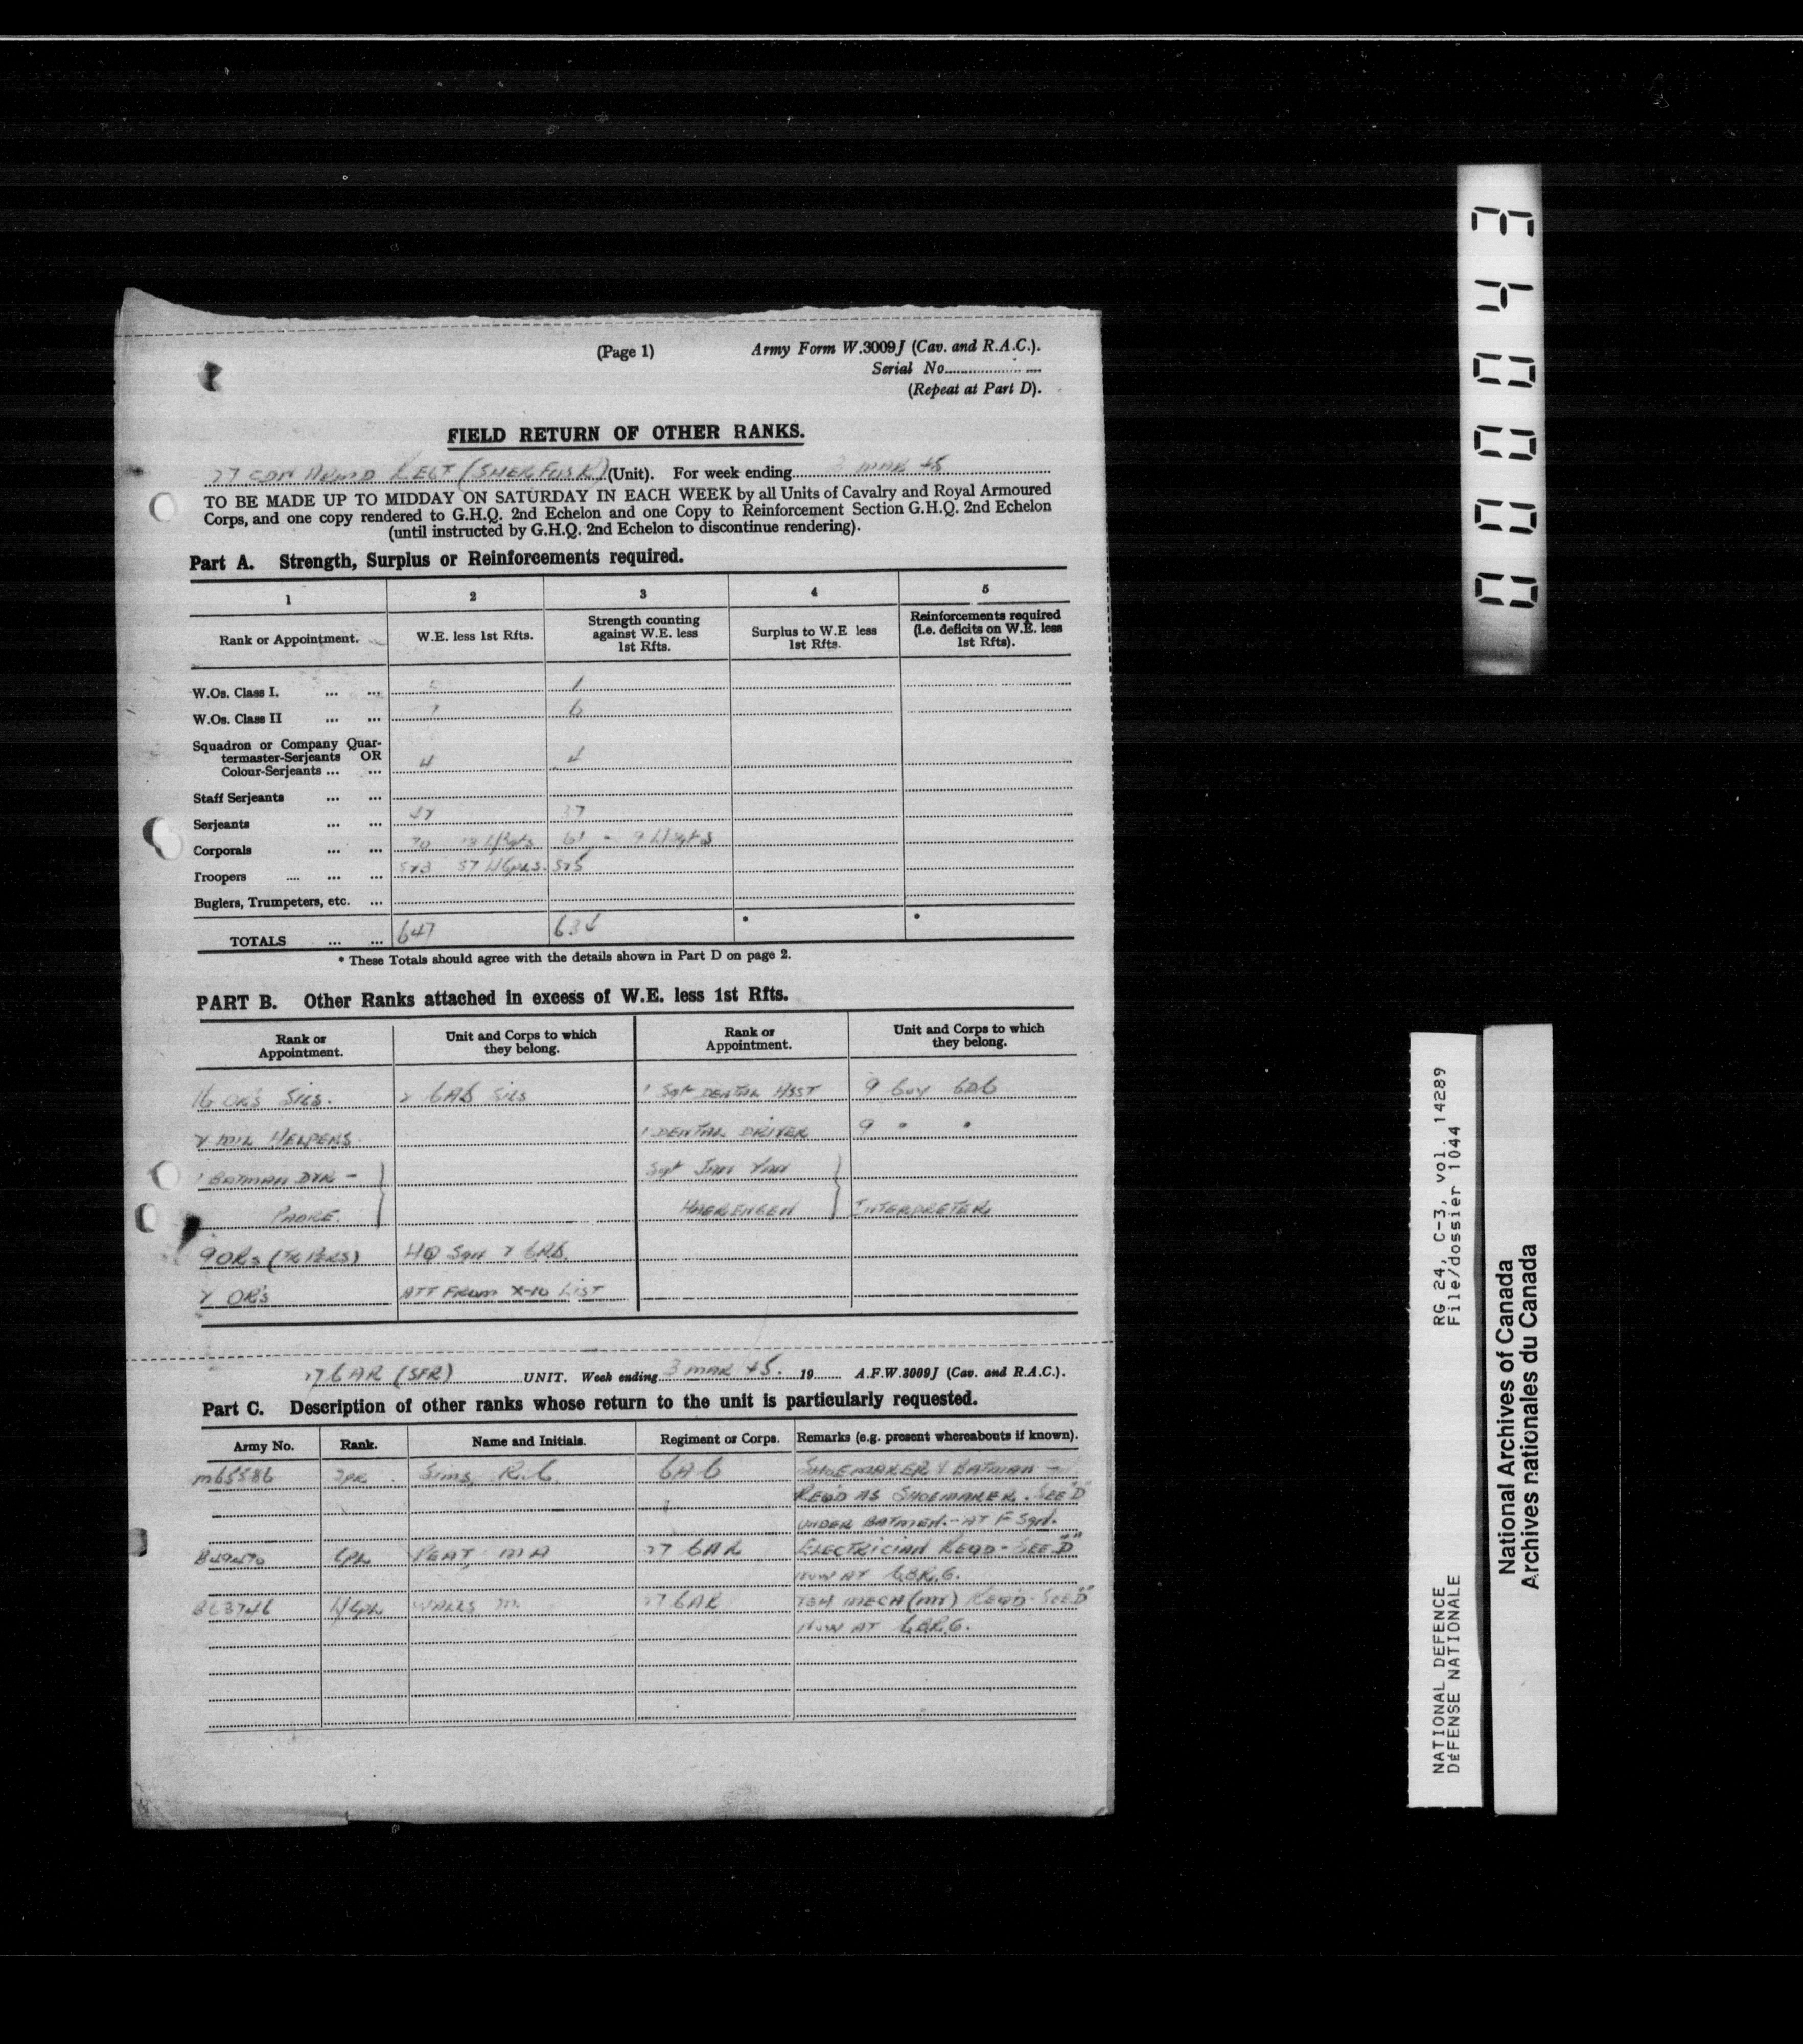 (Page 1)
Army Form W.3009J (Cav. and R.A.C.).
Serial No.
(Repeat at Part D).
FIELD RETURN OF OTHER RANKS.
27 CDN ARMD REGT (SHER FUS R) (Unit). For week ending 3 MAR 45
TO BE MADE UP TO MIDDAY ON SATURDAY IN EACH WEEK by all Units of Cavalry and Royal Armoured
Corps, and one copy rendered to G.H.Q. 2nd Echelon and one Copy to Reinforcement Section G.H.Q. 2nd Echelon
(until instructed by G.H.Q. 2nd Echelon to discontinue rendering).
Part A. Strength, Surplus or Reinforcements required.
1 2 3 4 5
Rank or Appointment. W.E. less 1st Rfts. Strength counting against W.E. less 1st Rfts. Surplus to W.E less 1st Rfts. Reinforcements required (i.e. deficits on W.E. less 1st Rfts).
W.Os. Class I. ... ... 1
W.Os. Class II ... ... 6
Squadron or Company Quar-
termaster-Serjeants OR
Colour-Serjeants ... ... 4 4
Staff Serjeants ... ...
Serjeants ... ... 37
Corporals ... ... 70 L/Sgts 61 - 9 L/Sgts
Troopers .... ... ... 523 57 L/Cpls. 525
Buglers, Trumpeters, etc. ...
TOTALS ... ... 647 634 * *
* These Totals should agree with the details shown in Part D on page 2.
PART B. Other Ranks attached in excess of W.E. less 1st Rfts.
Rank or Appointment. Unit and Corps to which they belong. Rank or Appointment. Unit and Corps to which they belong.
16 ORS SIGS. 2 CAB SIGS 1 Sgt DENTAL ASST 9 Coy CDC
2 MIL HELPERS 1 DENTAL DRIVER 9 " "
1 BATMAN DVR - Sgt JAN VAN
PADRE. INTERPRETER
9 ORs HQ Sqn 2 CAB.
2 ORs ATT FROM X-10 LIST
27 CAR (SFR) UNIT. Week ending 3 MAR 45. 19...... A.F.W.3009J (Cav. and R.A.C.).
Part C. Description of other ranks whose return to the unit is particularly requested.
Army No. Rank. Name and Initials. Regiment or Corps. Remarks (e.g. present whereabouts if known).
M65586 Tpr. Sims, R.C. CAC SHOEMAKER & BATMAN -
REQD AS SHOEMAKER. SEE "D"
UNDER BATMEN. - AT F Sqn.
B49470 Cpl PEAT, M A 27 CAR ELECTRICIAN REQD - SEE "D"
NOW AT C.B.R.G.
L/Cpl WALLS M. 27 CAR MECH (MV) REQD - SEE "D"
NOW AT C.B.R.G.
00043
RG 24, C-3, vol. 14289
File/dossier 1044
NATIONAL DEFENCE
DéFENSE NATIONALE
National Archives of Canada
Archives nationales du Canada